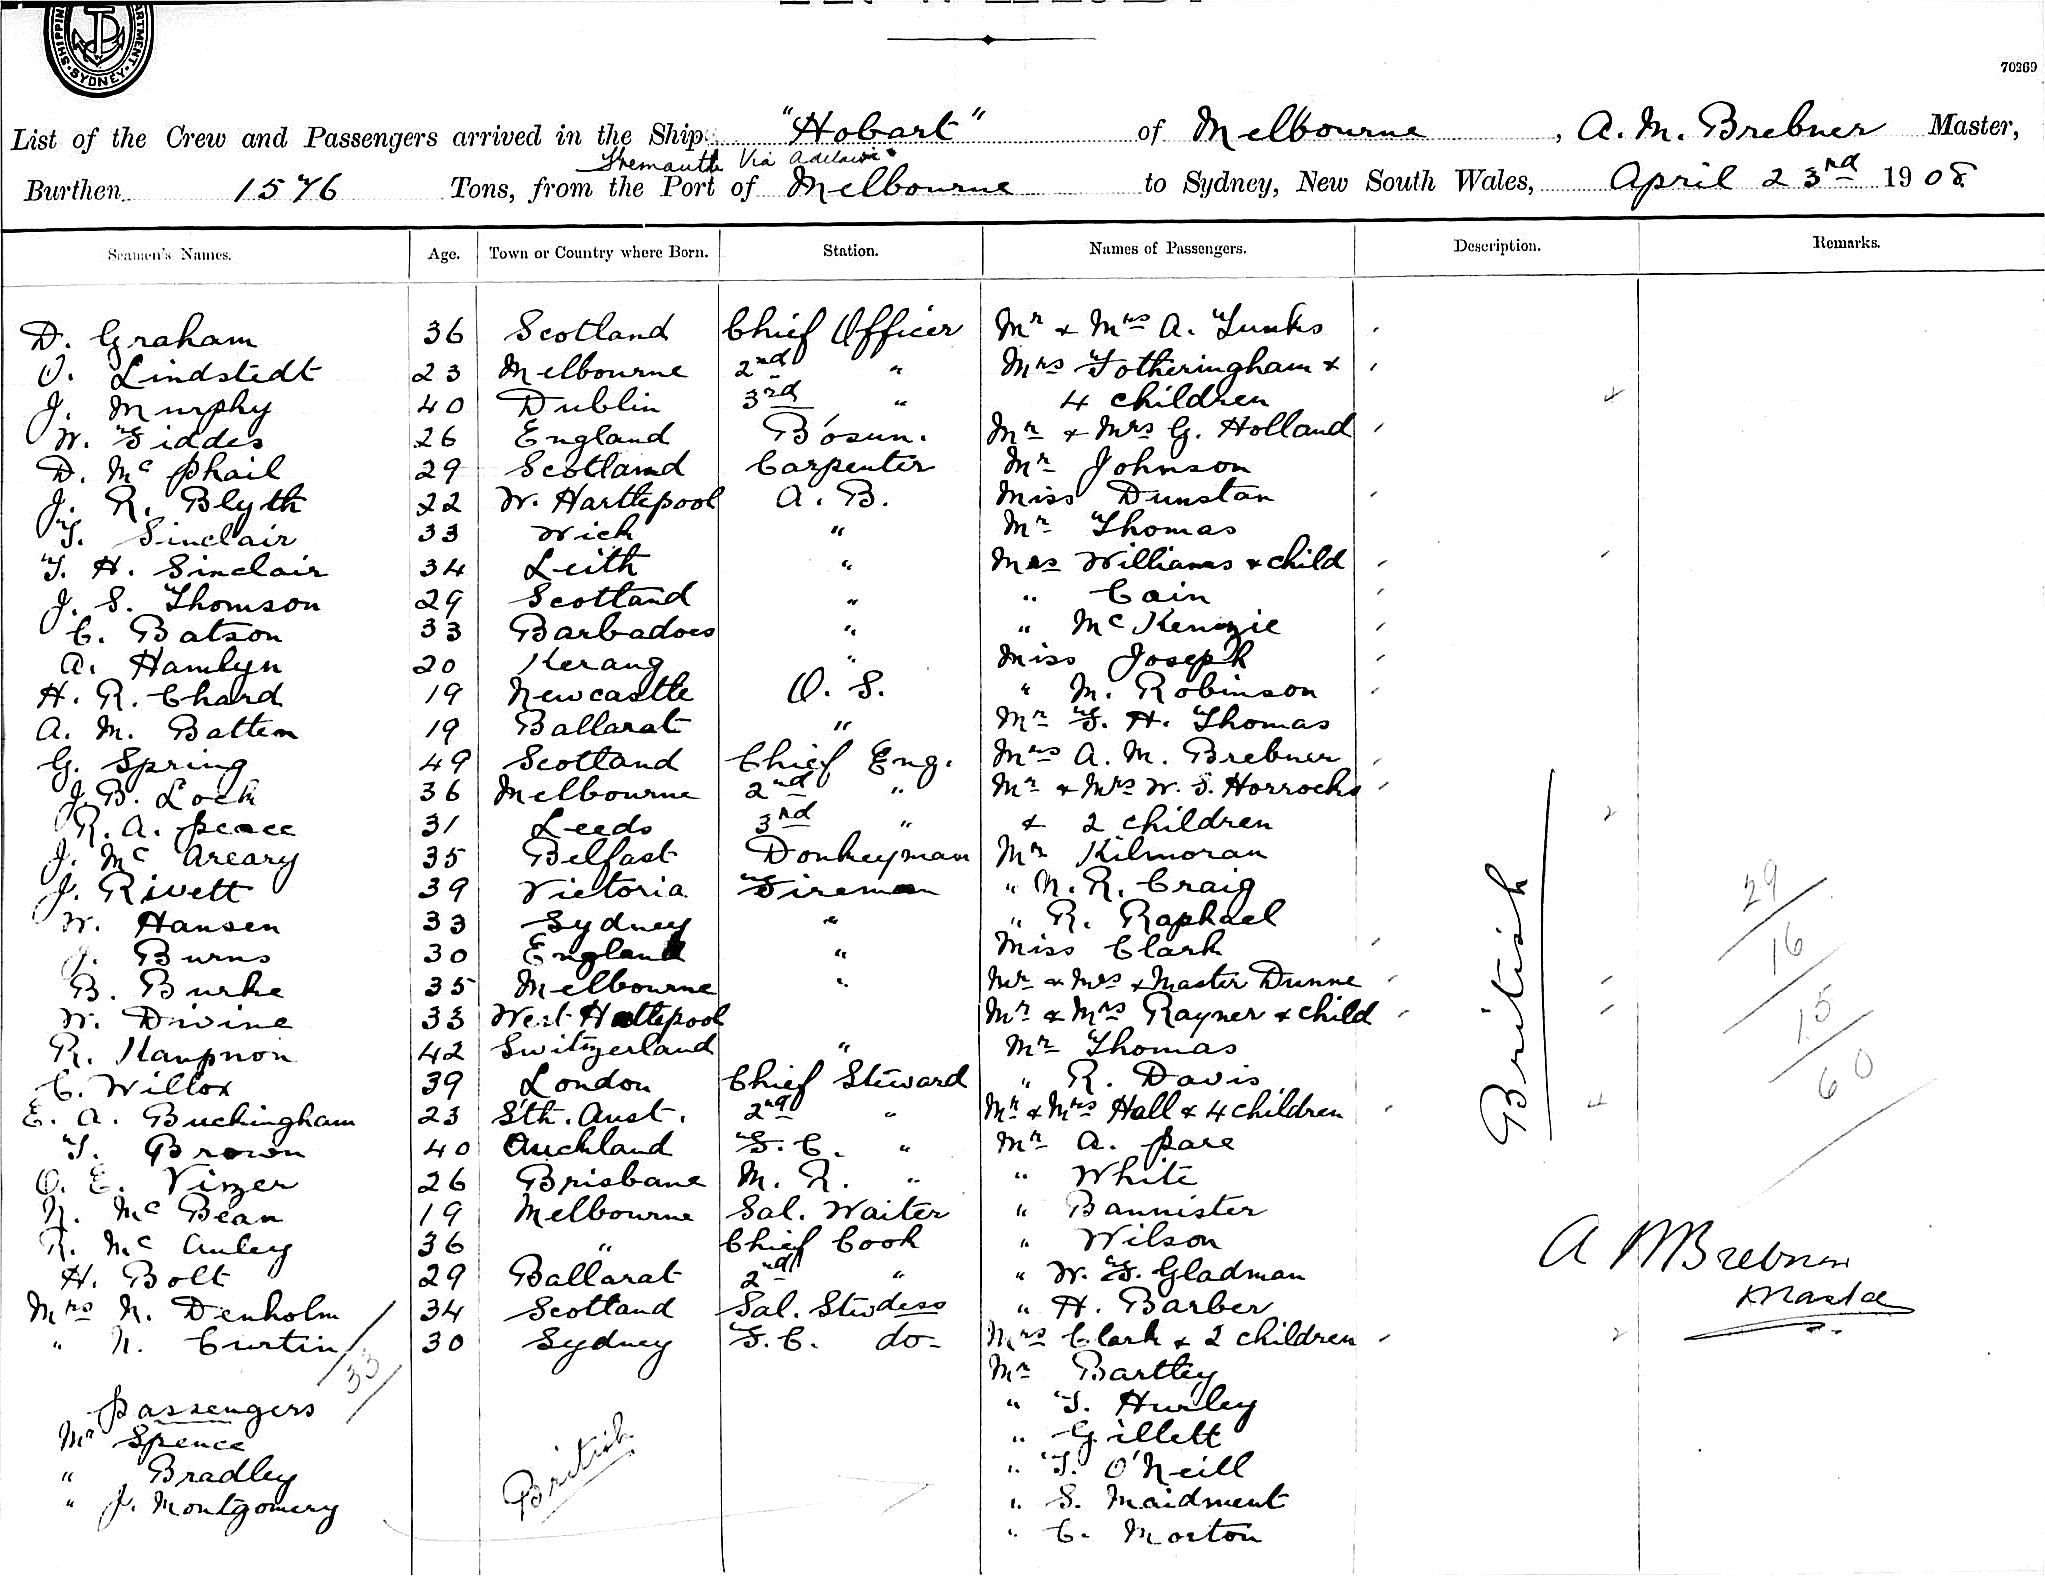 SHIPPING DEPARTMENT SYDNEY
70269
List of the Crew and Passengers arrived in the Ship "Hobart" of Melbourne, A. M. Brebner Master,
Fremantle Via Adelaide
Burthen 1576 Tons, from the Port of Melbourne to Sydney, New South Wales, April 23rd 1908.
Seamen's Names. Age. Town or Country where Born. Station. Names of Passengers. Description. Remarks.
D. Graham 36 Scotland Chief Officer Mr & Mrs A. Junks
O. Lindstedt 23 Melbourne 2nd " Mrs Fotheringham &
J. Murphy 40 Dublin 3rd " 4 children 4
W. Giddes 26 England Bosun. Mr & Mrs G. Holland
D. Mc Phail 29 Scotland Carpenter Mr Johnson
J. R. Blyth 22 W. Hartlepool A. B. Miss Dunstan
T. Sinclair 33 Wick " Mr Thomas
T. H. Sinclair 34 Leith " Mrs Williams & child
J. S. Thomson 29 Scotland " " Cain
C. Batson 33 Barbadoes " " Mc Kenzie
A. Hamlyn 20 Kerang " Miss Joseph
H. R. Chard 19 Newcastle O. S. " M. Robinson
A. M. Batten 19 Ballarat " Mr F. H. Thomas
G. Spring 49 Scotland Chief Eng. Mrs A. M. Brebner
J. B. Lock 36 Melbourne 2nd " Mr & Mrs W. S. Horrocks
R. A. Peace 31 Leeds 3rd " & 2 children 2
J. Mc Areary 35 Belfast Donkeyman Mr Kilmoran
J. Rivett 39 Victoria Fireman " N. R. Craig 29
W. Hansen 33 Sydney " " R. Raphael
J. Burns 30 England " Miss Clark 16
B. Burke 35 Melbourne " Mr & Mrs & Master Dunne
W. Divine 33 West Hartlepool Mr & Mrs Rayner & child 15
R. 42 Switzerland " Mr Thomas
C. Willox 39 London Chief Steward " R. Davis 60
E. A. Buckingham 23 Sth. Aust. 2nd " Mr & Mrs Hall & 4 children British 4
T. Brown 40 Auckland F. C. " Mr A. Pare
O. E. Vizer 26 Brisbane M. R. " " White
N. Mc Bean 19 Melbourne Sal. Waiter " Bannister
R. Mc Auley 36 " Chief Cook " Wilson A M Brebner
H. Bolt 29 Ballarat 2nd " " W. F. Gladman
Mrs N. Denholm 34 Scotland Sal. Stewdess " H. Barber Master
" N. Curtin 30 Sydney F. C. do- Mrs Clark & 2 children 2
33 Mr Bartley
Passengers " T. Hurley
Mr Spence " Gillett
" Bradley British " T. O'Neill
" J. Montgomery " S. Maidment
" C. Morton